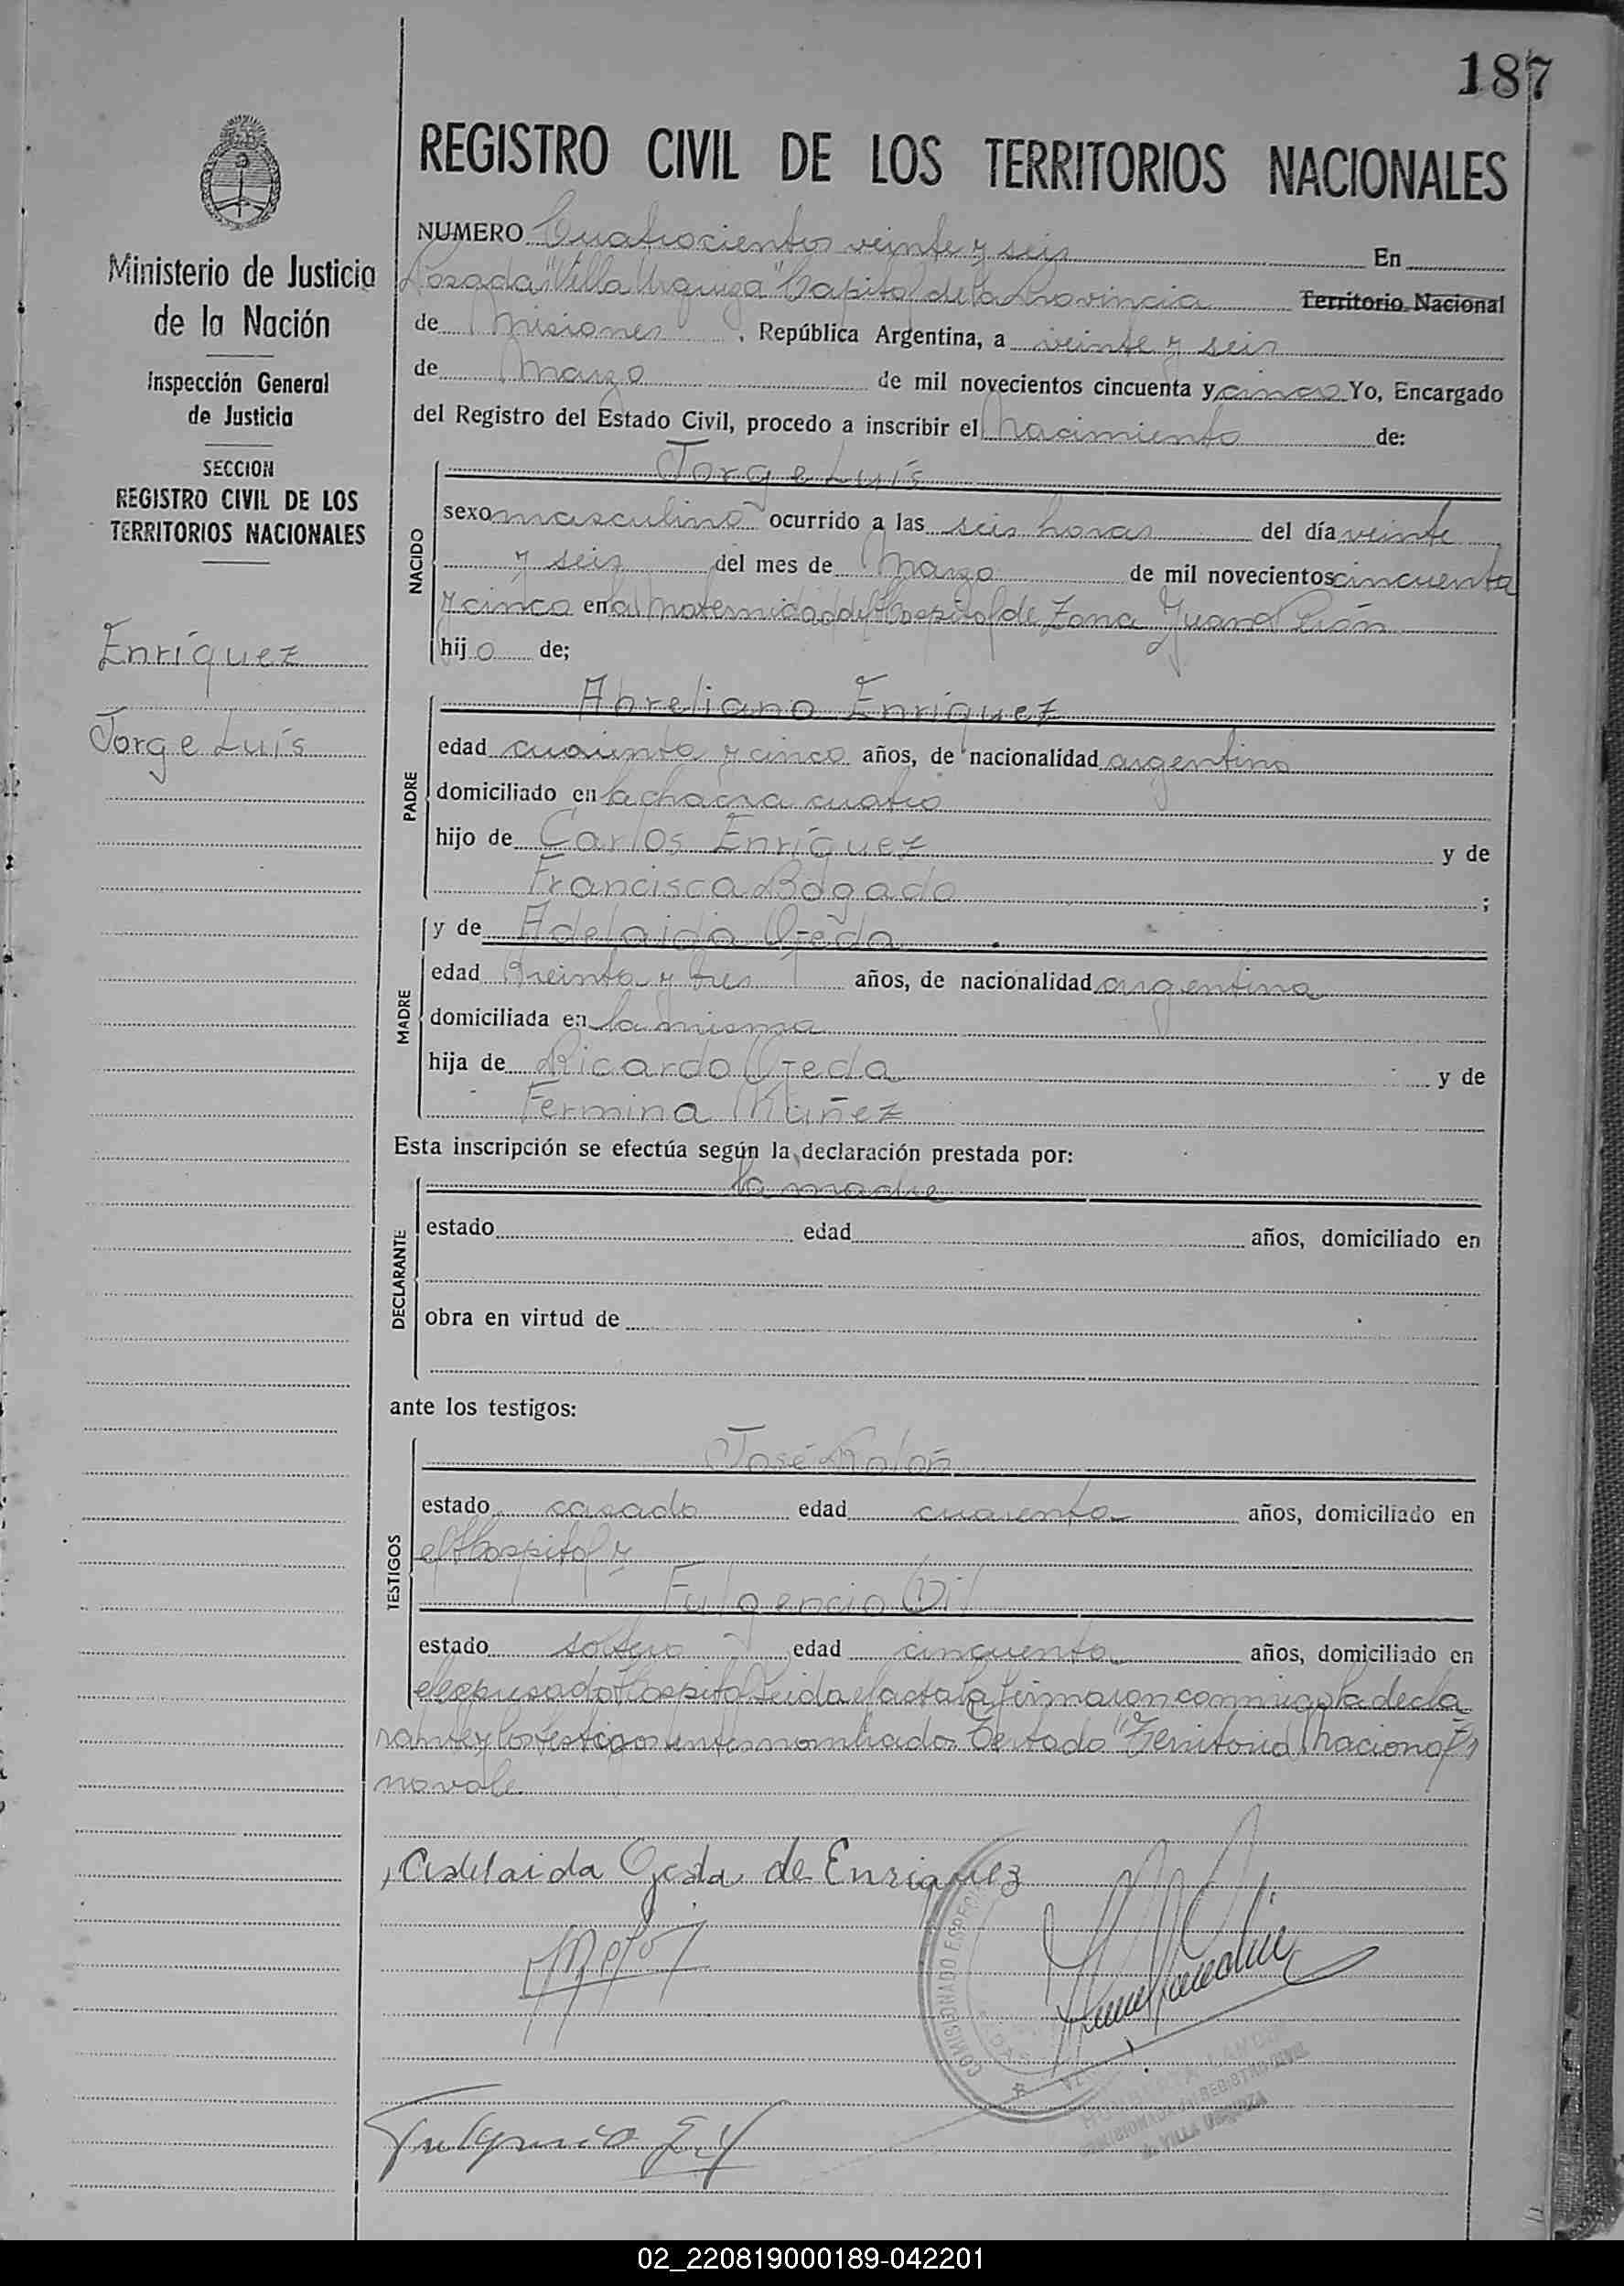 187
REGISTRO CIVIL DE LOS TERRITORIOS NACIONALES
Ministerio de Justicia
de la Nación
Inspección General
de Justicia
SECCION
REGISTRO CIVIL DE LOS
TERRITORIOS NACIONALES
Enríquez
Jorge Luís
NUMERO Cuatrocientos veinte y seis En
Posadas "Villa Urquiza" Capital de la Provincia Territorio Nacional
de Misiones, República Argentina, a veinte y seis
de Marzo de mil novecientos cincuenta y cinco Yo, Encargado
del Registro del Estado Civil, procedo a inscribir el nacimiento de:
NACIDO
Jorge Luís
sexo masculino ocurrido a las seis horas del día veinte
y seis del mes de Marzo de mil novecientos cincuenta
y cinco en la Maternidad del Hospital de Zona Juan Perón
hijo de;
PADRE
Abreliano Enríquez
edad cuarenta y cinco años, de nacionalidad argentino
domiciliado en la chacra cuatro
hijo de Carlos Enríquez y de
Francisca Bogado ;
MADRE
y de Adelaida Ojeda
edad treinta y tres años, de nacionalidad argentina
domiciliada en la misma
hija de Ricardo Ojeda y de
Fermina Núñez
Esta inscripción se efectúa según la declaración prestada por:
DECLARANTE
la madre
estado edad años, domiciliado en
obra en virtud de
ante los testigos:
TESTIGOS
José
estado casado edad cuarenta años, domiciliado en
el Hospital y
Fulgencio Gil
estado soltero edad cincuenta años, domiciliado en
el expresado Hospital Leida el acta la firmaron conmigo la decla
rante y los testigos antes nombrados Testado "Territorio Nacional"
no vale
Adelaida Ojeda de Enriquez
COMISIONADO ESPECIAL
Fulgencio Gil
REGISTRO CIVIL
VILLA URQUIZA
02_220819000189-042201